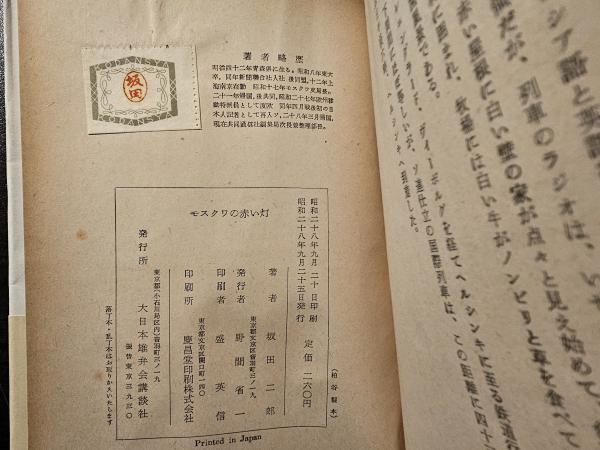 KODANSYA
坂田
KODANSYA
著者略歴
明治四十二年青森県に生る。昭和八年東大
卒、同年新聞聯合社入社 後同盟、十二年上
海南京在勤 昭和十七年モスクワ支局長。
二十一年帰国、後共同、昭和二十七年欧州移
動特派員として渡欧 同年四月戦後初の日
本人記者として再入ソ、二十八年三月帰国、
現在共同通信社編集局次長兼整理部長。
昭和二十八年九月二十日印刷
昭和二十八年九月二十五日発行
定価 二六〇円
モスクワの赤い灯
著者 坂田二郎
東京都文京区音羽町三ノ一九
発行者 野間省一
印刷者 盛英信
東京都文京区関口町一四〇
印刷所 慶昌堂印刷株式会社
東京都(小石川局区内)音羽町三ノ一九
発行所 大日本雄弁会講談社
振替東京三九三〇
落丁本・乱丁本はお取りかえいたします
Printed in Japan
シア語と英語
だが、列車のラジオは、いや
点々と見え始めて、
赤い屋根に白い壁の家が
に囲まれ、牧場には白い牛がノンビリと草を食べて
風景である。
ヴィーボルグを経てヘルシンキに至る鉄道の
ソ連仕立の国際列車は、この距離に四十
ヘルシンキへ到着した。